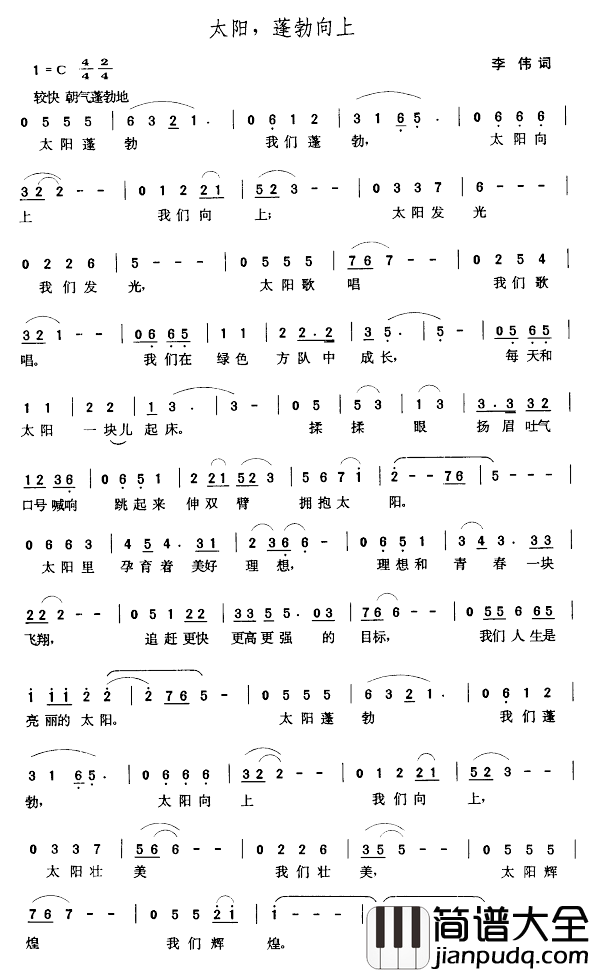 太阳，蓬勃向上
1=C 4/4 2/4 李伟词
较快 朝气蓬勃地
0 5 5 5 | 6 3 2 1 . | 0 6 1 2 | 3 1 6 5 . | 0 6 6 6 |
太 阳 蓬 勃 我 们 蓬 勃， 太 阳 向
3 2 2 - - | 0 1 2 2 1 | 5 2 3 - - | 0 3 3 7 | 6 - - - |
上 我 们 向 上； 太 阳 发 光
0 2 2 6 | 5 - - - | 0 5 5 5 | 7 6 7 - - | 0 2 5 4 |
我 们 发 光， 太 阳 歌 唱 我 们 歌
3 2 1 - - | 0 6 6 5 | 1 1 | 2 2 . 2 | 3 5 . | 5 - | 0 5 6 5 |
唱。 我 们 在 绿 色 方 队 中 成 长， 每 天 和
1 1 | 2 2 | 1 3 . | 3 - | 0 5 | 5 3 | 1 3 | 3 . 3 3 2 |
太 阳 一 块 儿 起 床。 揉 揉 眼 扬 眉 吐 气
1 2 3 6 | 0 6 5 1 | 2 2 1 5 2 3 | 5 6 7 1 | 2 - - 7 6 | 5 - - - |
口 号 喊 响 跳 起 来 伸 双 臂 拥 抱 太 阳。
0 6 6 3 | 4 5 4 . 3 1 | 2 3 6 6 - | 0 6 5 1 | 3 4 3 . 3 3 |
太 阳 里 孕 育 着 美 好 理 想， 理 想 和 青 春 一 块
2 2 2 - - | 0 5 1 2 2 | 3 3 5 5 . 0 3 | 7 6 6 - | 0 5 5 6 6 5 |
飞 翔， 追 赶 更 快 更 高 更 强 的 目 标， 我 们 人 生 是
1 1 1 2 2 | 2 7 6 5 - | 0 5 5 5 | 6 3 2 1 . | 0 6 1 2 |
亮 丽 的 太 阳。 太 阳 蓬 勃 我 们 蓬
3 1 6 5 . | 0 6 6 6 | 3 2 2 - - | 0 1 2 2 1 | 5 2 3 - - |
勃， 太 阳 向 上 我 们 向 上，
0 3 3 7 | 5 6 6 - - | 0 2 2 6 | 3 5 5 - - | 0 5 5 5 |
太 阳 壮 美 我 们 壮 美， 太 阳 辉
7 6 7 - - | 0 5 5 2 1 | 1 - - - | 1 - - -
煌 我 们 辉 煌。
简谱大全
jianpudq.com